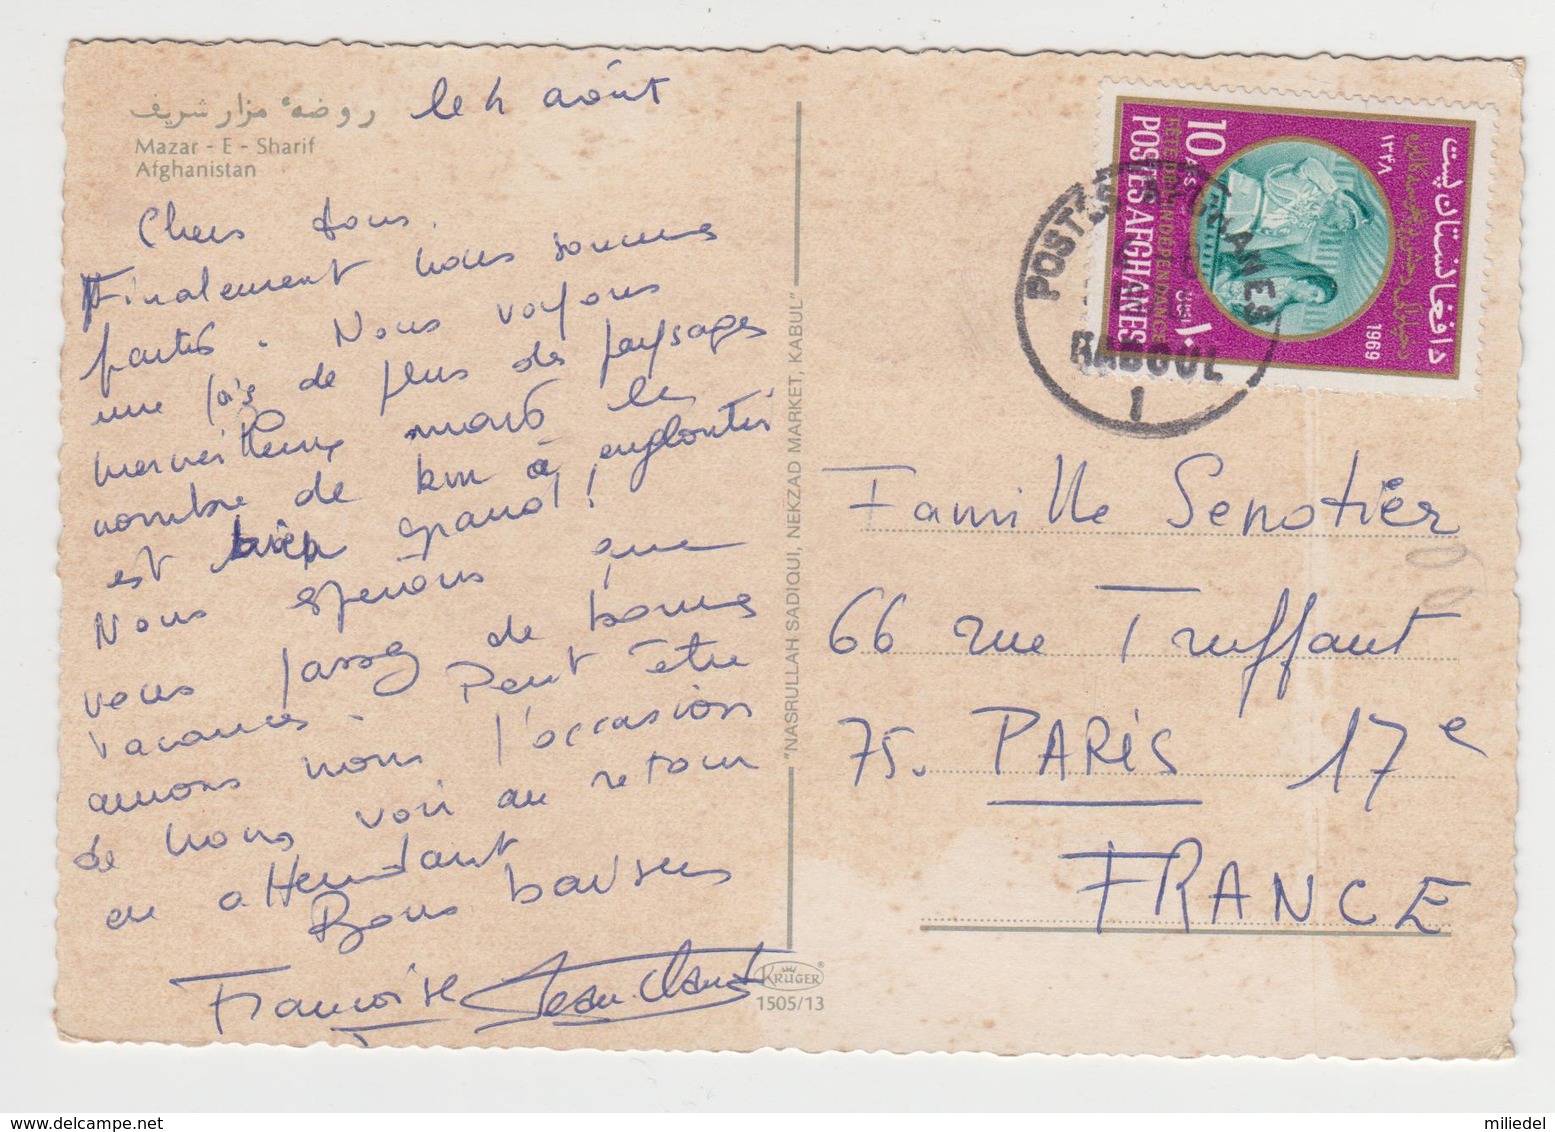 روضهٔ مزار شریف
Mazar - E - Sharif
Afghanistan
le 4 août
Chers tous.
Finalement nous sommes
partis. Nous voyons
une fois de plus des paysages
merveilleux mais le
nombre de km à engloutir
est bien grand!
Nous espérons que
vous passez de bonnes
vacances. Peut être
aurons nous l'occasion
de nous voir au retour
en attendant
Bons baisers
Françoise Jean Claude
"NASRULLAH SADIQUI, NEKZAD MARKET, KABUL"
KRÜGER®
1505/13
POSTES AFGHANES
KABOUL
1
د افغانستان پست
۱۳۴۸
1969
۱۰
10 AFS
FÊTE DE L'INDEPENDANCE
POSTES AFGHANES
Famille Senotier
66 rue Truffaut
75. PARIS 17e
FRANCE
miliedel